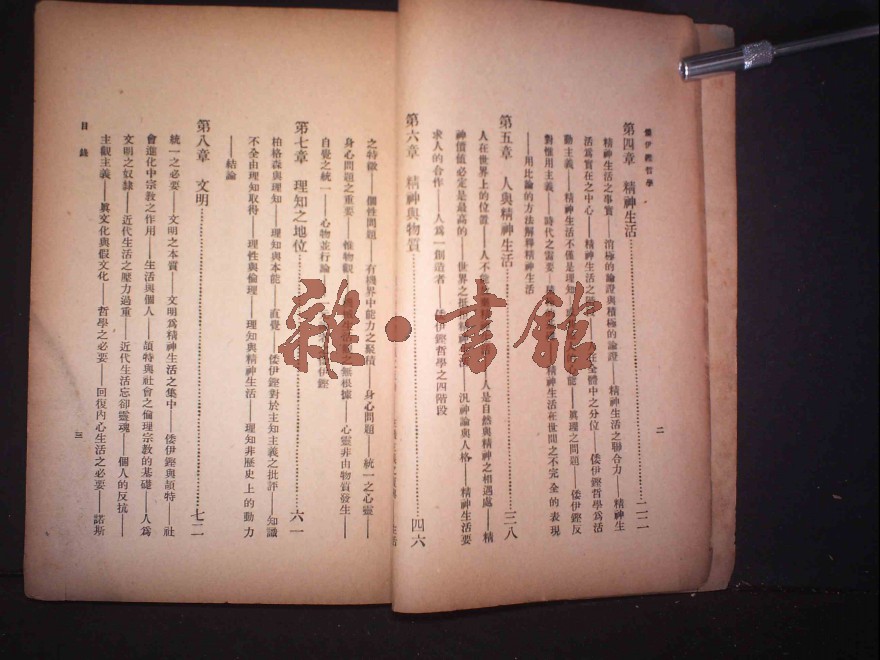 倭伊鏗哲學
二
第四章 精神生活……二二
精神生活之事實——消極的論證與積極的論證——精神生活之聯合力——精神生
活爲實在之中心——精神生活之 在全體中之分位——倭伊鏗哲學爲活
動主義——精神生活不僅是理知 能——眞理之問題——倭伊鏗反
對惟用主義——時代之需要 精神生活在世間之不完全的表現
——用比論的方法解釋精神生活
第五章 人與精神生活……三八
人在世界上的位置——人不能 人是自然與精神之相遇處——精
神價值必定是最高的——世界之 精神生活——汎神論與人格——精神生活要
求人的合作——人爲一創造者——倭伊鏗哲學之四階段
第六章 精神與物質……四六
生活
之特徵——個性問題——有機界中能力之聚積——身心問題——統一之心靈——
身心問題之重要——惟物觀 無根據——心靈非由物質發生——
自覺之統一——心物並行論 倭伊鏗
第七章 理知之地位……六一
柏格森與理知——理知與本能——直覺——倭伊鏗對於主知主義之批評——知識
不全由理知取得——理性與倫理——理知與精神生活——理知非歷史上的動力
——結論
第八章 文明……七二
統一之必要——文明之本質——文明爲精神生活之集中——倭伊鏗與頡特——社
會進化中宗教之作用——生活與個人——頡特與社會之倫理宗教的基礎——人爲
文明之奴隸——近代生活之壓力過重——近代生活忘卻靈魂——個人的反抗——
主觀主義——眞文化與假文化——哲學之必要——回復內心生活之必要——諾斯
目錄
三
雜·書館